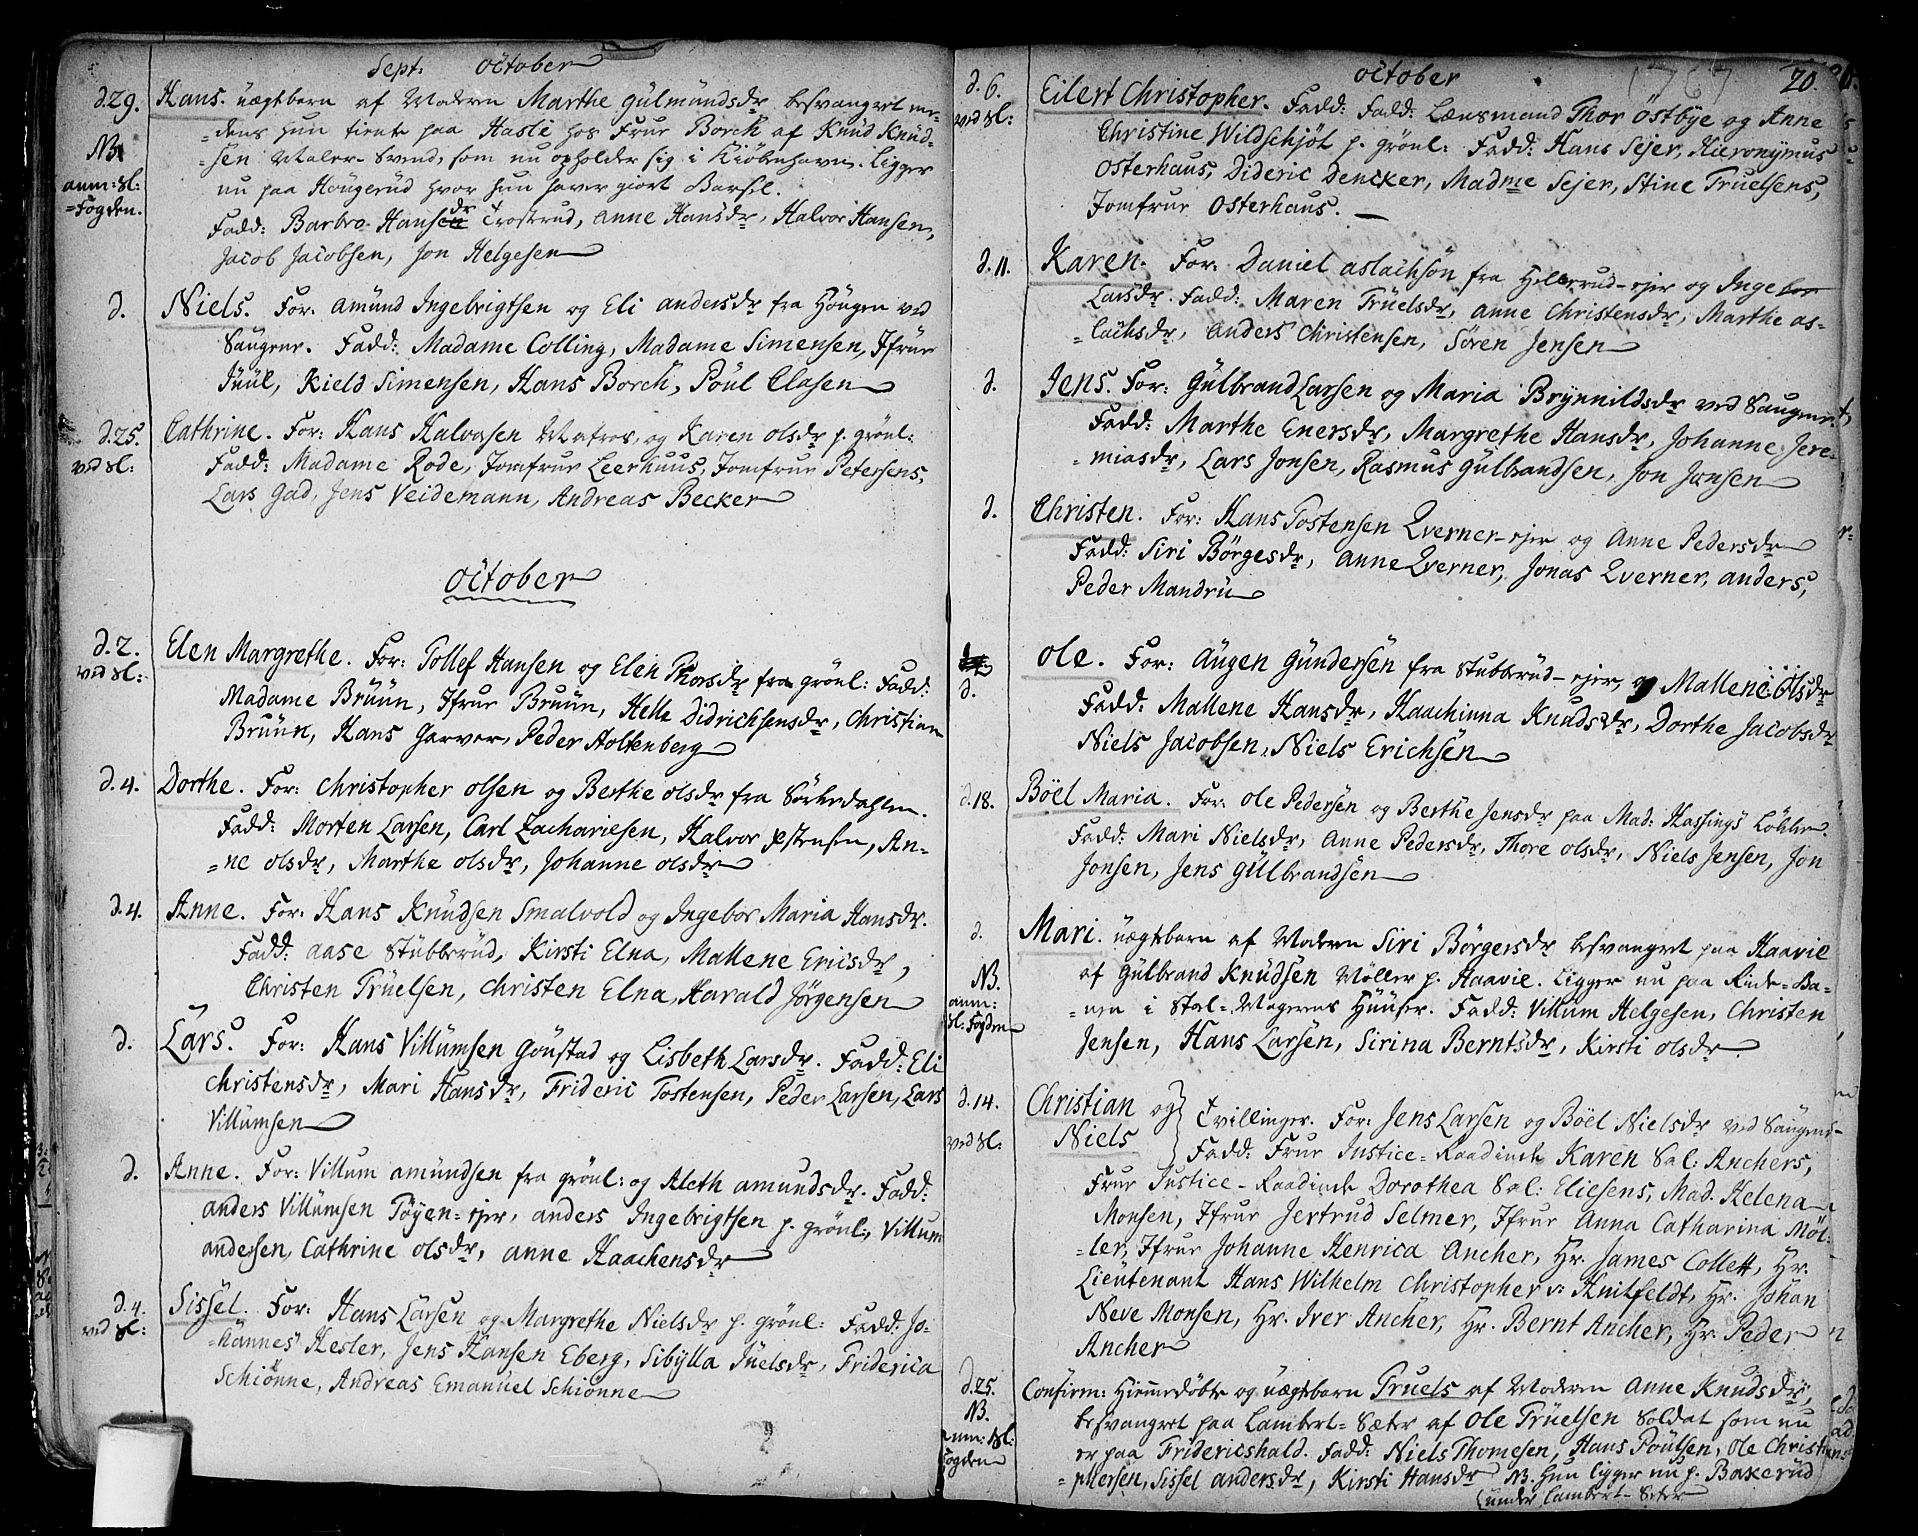 Sept. October
d.29. Hans. uægtbarn af Moderen Marthe Gulmundsdr besvangret me-
NB =dens hun tiente paa Hasle hos Frue Borch af Knud Knud-
=sen Maler-Svend, som nu opholder sig i Kiöbenhavn. Ligger
anm: Sl: nu paa Hougerud hvor hun haver giort Barsel.
=Fogden. Fadd: Barbro Hansdr Trostrud, Anne Hansdr, Halvor Hansen,
Jacob Jacobsen, Jon Helgesen
d. Niels. For: Amund Ingebrigtsen og Eli Andersdr fra Höugen ved
Saugene. Fadd: Madame Colling, Madame Simensen, Jfrue
Juul, Kield Simensen, Hans Borch, Poul Clasen
d.25. Cathrine. For: Hans Halvorsen Matros, og Karen Olsdr p. Grönl:
ved Sl: Fadd: Madame Rode, Jomfrue Leerhuus, Jomfrue Petersens,
Lars Gad, Jens Veidemann, Andreas Becker
October
d.2. Elen Margrethe. For: Tollef Hansen og Elen Thorsdr fra Grönl: Fadd:
ved Sl: Madame Bruun, Jfrue Bruun, Helle Didrichsensdr, Christian
Bruun, Hans Garver, Peder Holtenberg
d.4. Dorthe. For: Christopher Olsen og Berthe Olsdr fra Sörkedahlen.
Fadd: Morten Larsen, Carl Zachariesen, Halvor Estensen, An-
=ne Olsdr, Marthe Olsdr, Johanne Olsdr
d.4. Anne. For: Hans Knudsen Smalvold og Ingebor Maria Hansdr.
Fadd: Aase Stubberud, Kirsti Elna, Mallene Ericsdr,
Christen Truelsen, Christen Elna, Harald Jörgensen
d. Lars. For: Hans Villumsen Goustad og Lisbeth Larsdr. Fadd: Eli
Christensdr, Mari Hansdr, Frideric Tostensen, Peder Larsen, Lars
Villumsen
d. Anne. For: Villum Amundsen fra Grönl: og Aleth Amundsdr. Fadd:
Anders Villumsen Töyen-ejer, Anders Ingebrigtsen p. Grönl:, Villum
Andersen, Cathrine Olsdr, Anne Haachensdr
d.4. Sissel. For: Hans Larsen og Margrethe Nielsdr p. Grönl: Fadd: Jo-
ved Sl: =hannes Hesler, Jens Hansen Eberg, Sibylla Juelsdr, Friderica
Schiönne, Andreas Emanuel Schiönne
October 1767 20.
d.6. Eilert Christopher. Fadd: Fadd: Lænsmand Thor Östbye og Anne
ved Sl: Christine Wildschjöt p. Grönl: Fadd: Hans Sejer, Hieronymus
Osterhaus, Dideric Dencker, Madme Sejer, Stine Truelsens,
Jomfrue Osterhaus.
d.11. Karen. For: Daniel Aslachsön fra Hellerud-ejer og Ingebor
Larsdr. Fadd: Maren Truelsdr, Anne Christensdr, Marthe As-
=lachsdr, Anders Christensen, Sören Jensen
d. Jens. For: Gulbrand Larsen og Maria Brynnildsdr ved Saugene
Fadd: Marthe Enersdr, Margrethe Hansdr, Johanne Jere-
=miasdr, Lars Jonsen, Rasmus Gulbrandsen, Jon Jonsen
d. Christen. For: Hans Tostensen Qverner-ejer og Anne Pedersdr
Fadd: Siri Börgesdr, Anne Qverner, Jonas Qverner, Anders,
Peder Mandru
d. Ole. For: Augen Gundersen fra Stubberud-ejer, og Mallene Olsdr
Fadd: Mallene Hansdr, Haachinna Knudsdr, Dorthe Jacobsdr
Niels Jacobsen, Niels Erichsen
d.18. Böel Maria. For: Ole Pedersen og Berthe Jensdr paa Mad: Hassings Lökke.
Fadd: Mari Nielsdr, Anne Pedersdr, Thore Olsdr, Niels Jensen, Jon
Jonsen, Jens Gulbrandsen
d. Mari. uægtbarn af Moderen Siri Börgersdr besvangret paa Haavie
NB. af Gulbrand Knudsen Möller p. Haavie. Ligger nu paa Ride-Ba-
anm: =nen i Stal-Mesterens Huuser. Fadd: Villum Helgesen, Christen
Sl: Fogden Jensen, Hans Larsen, Sirina Berntsdr, Kirsti Olsdr.
d.14. Christian og Niels } Tvillinger. For: Jens Larsen og Böel Nielsdr ved Saugene
ved Sl: Fadd: Frue Justice-Raadinde Karen Sal: Anchers,
Frue Justice-Raadinde Dorothea Sal: Eliesens, Mad. Helena
Monsen, Jfrue Jertrud Selmer, Jfrue Anna Catharina Möl-
=ler, Jfrue Johanne Henrica Ancher, Hr. James Collett, Hr.
Lieutenant Hans Wilhelm Christopher v: Hnitfeldt, Hr. Johan
Neve Monsen, Hr. Iver Ancher, Hr. Bernt Ancher, Hr. Peder
Ancher
d.25. Confirm: Hiemmedöbte og uægtbarn Truels af Moderen Anne Knudsdr,
NB. besvangret paa Lambert-Sæter af Ole Truelsen Soldat som nu
anm: Sl: er paa Fridericshald. Fadd: Niels Thomesen, Hans Poulsen, Ole Christo-
Fogden =phersen, Sissel Andersdr, Kirsti Hansdr NB. Hun ligger nu p. Bakerud
under Lambert-Seter